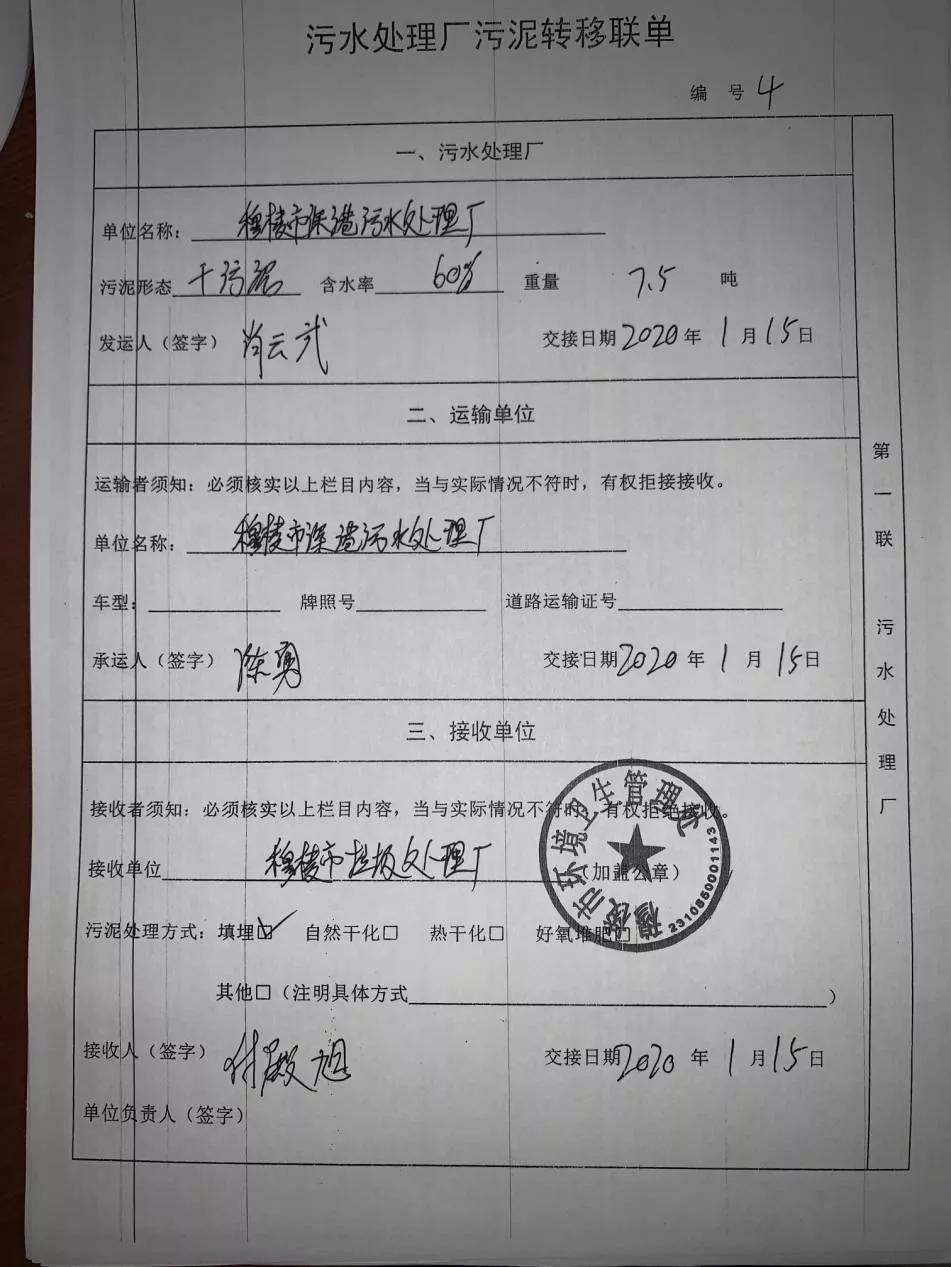 污水处理厂污泥转移联单
编 号 4
一、污水处理厂
单位名称: 穆棱市深港污水处理厂
污泥形态 干污泥 含水率 60% 重量 7.5 吨
发运人(签字) 肖云武 交接日期 2020 年 1 月 15 日
二、运输单位
运输者须知: 必须核实以上栏目内容, 当与实际情况不符时, 有权拒接接收。
单位名称: 穆棱市深港污水处理厂
车型: 牌照号 道路运输证号
承运人(签字) 陈勇 交接日期 2020 年 1 月 15 日
三、接收单位
接收者须知: 必须核实以上栏目内容, 当与实际情况不符时, 有权拒绝接收。
接收单位 穆棱市垃圾处理厂 (加盖公章)
污泥处理方式: 填埋☑ 自然干化□ 热干化□ 好氧堆肥□
其他□(注明具体方式 )
接收人(签字) 付殿旭 交接日期 2020 年 1 月 15 日
单位负责人(签字)
第一联 污水处理厂
穆棱市环境卫生管理处
2310850001143